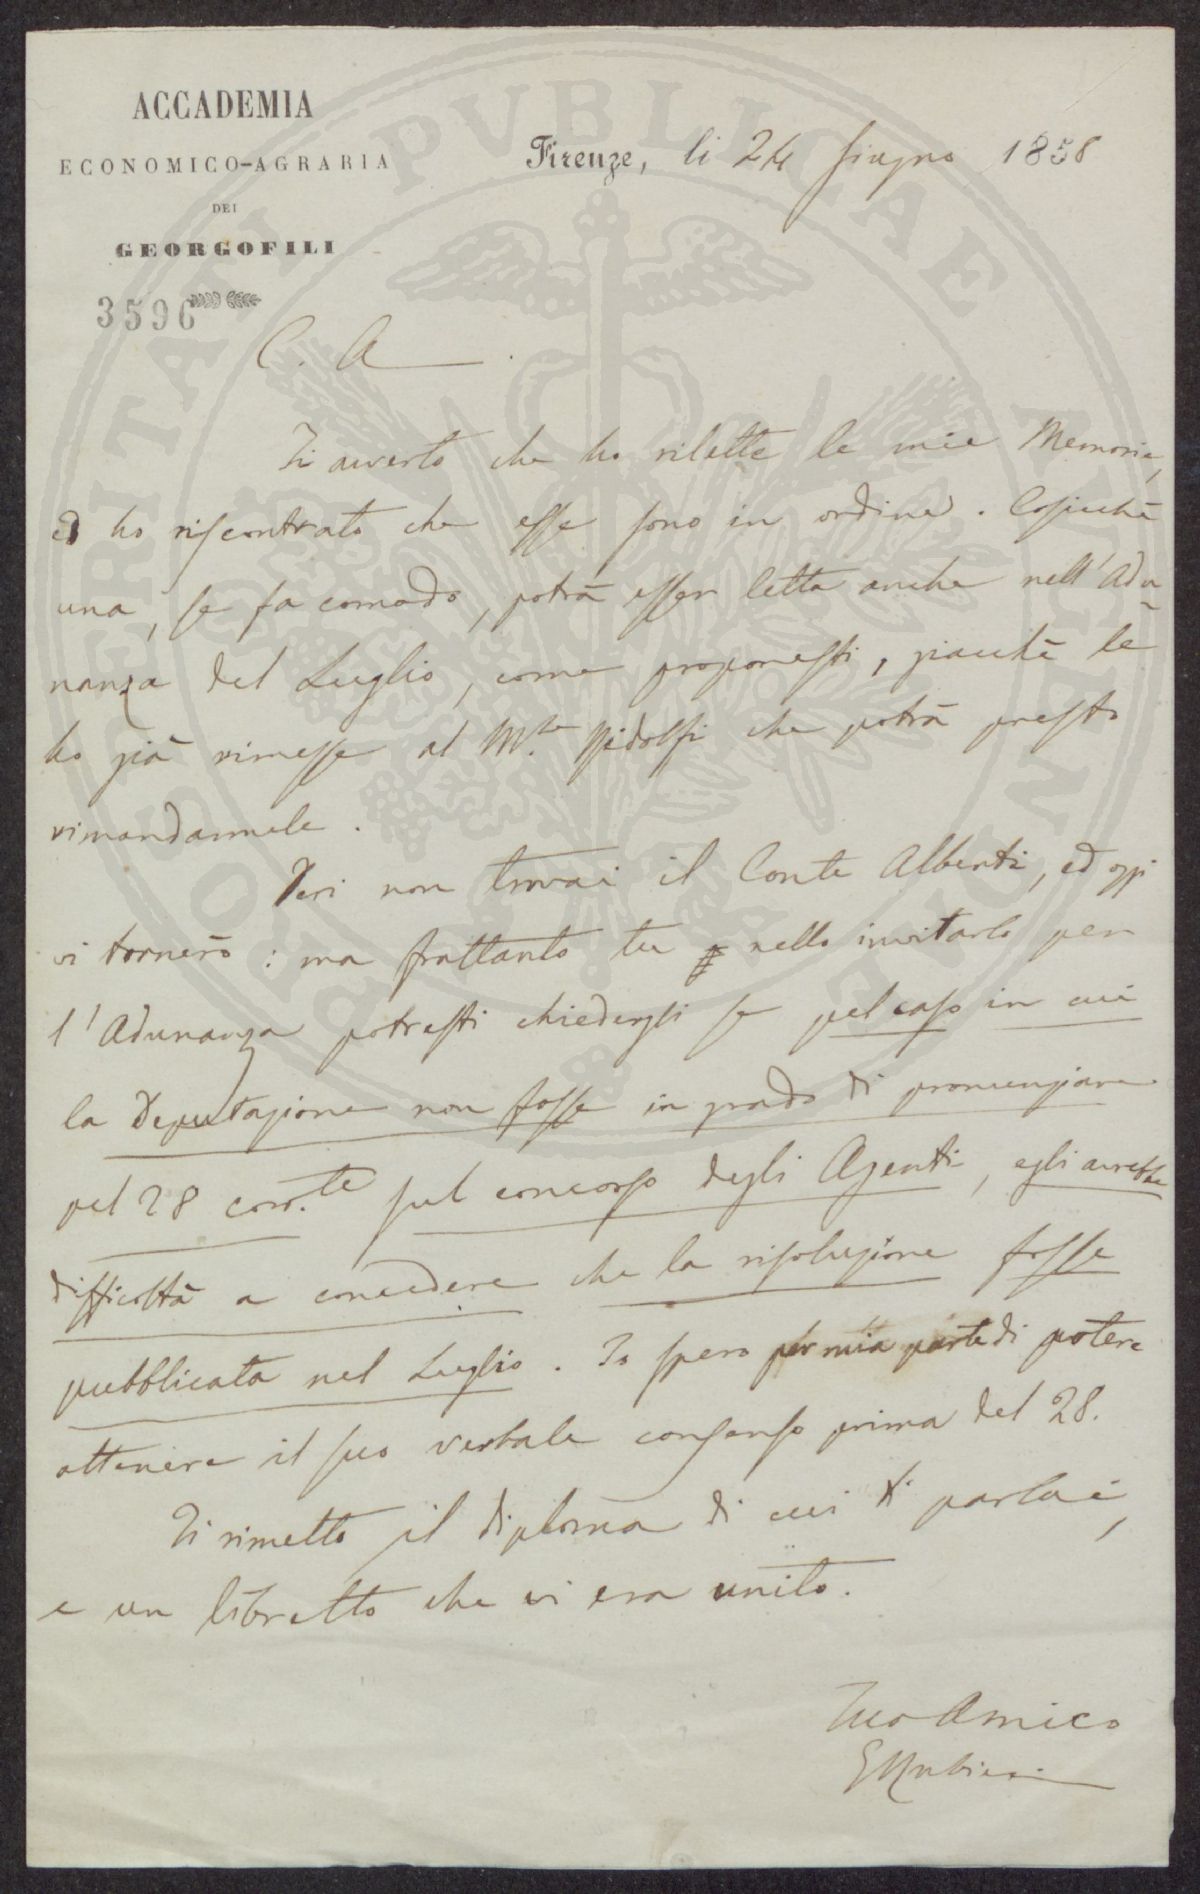 ACCADEMIA
ECONOMICO-AGRARIA
DEI
GEORGOFILI
3596
Firenze, li 24 Giugno 1858
C. A
Ti avverto che ho rilette le mie Memorie,
ed ho riscontrato che esse sono in ordine. Cosicchè
una, se fa comodo, potrà esser letta anche nell'Adu
nanza del Luglio, come proponesti, giacchè le
ho già rimesse al M.se Ridolfi che potrà presto
rimandarmele.
Ieri non trovai il Conte Alberti, ed oggi
vi tornerò: ma frattanto tu nello invitarlo per
l'Adunanza potresti chiedergli se pel caso in cui
la Deputazione non fosse in grado di pronunziare
pel 28 corr.te sul concorso degli Agenti, egli avrebbe
difficoltà a concedere che la risoluzione fosse
pubblicata nel Luglio. Io spero per mia parte di potere
ottenere il suo verbale consenso prima del 28.
Ti rimetto il diploma di cui ti parlai,
e un libretto che vi era unito.
Tuo Amico
E Rubieri
PROSPERITATI PVBLICAE AVGENDAE